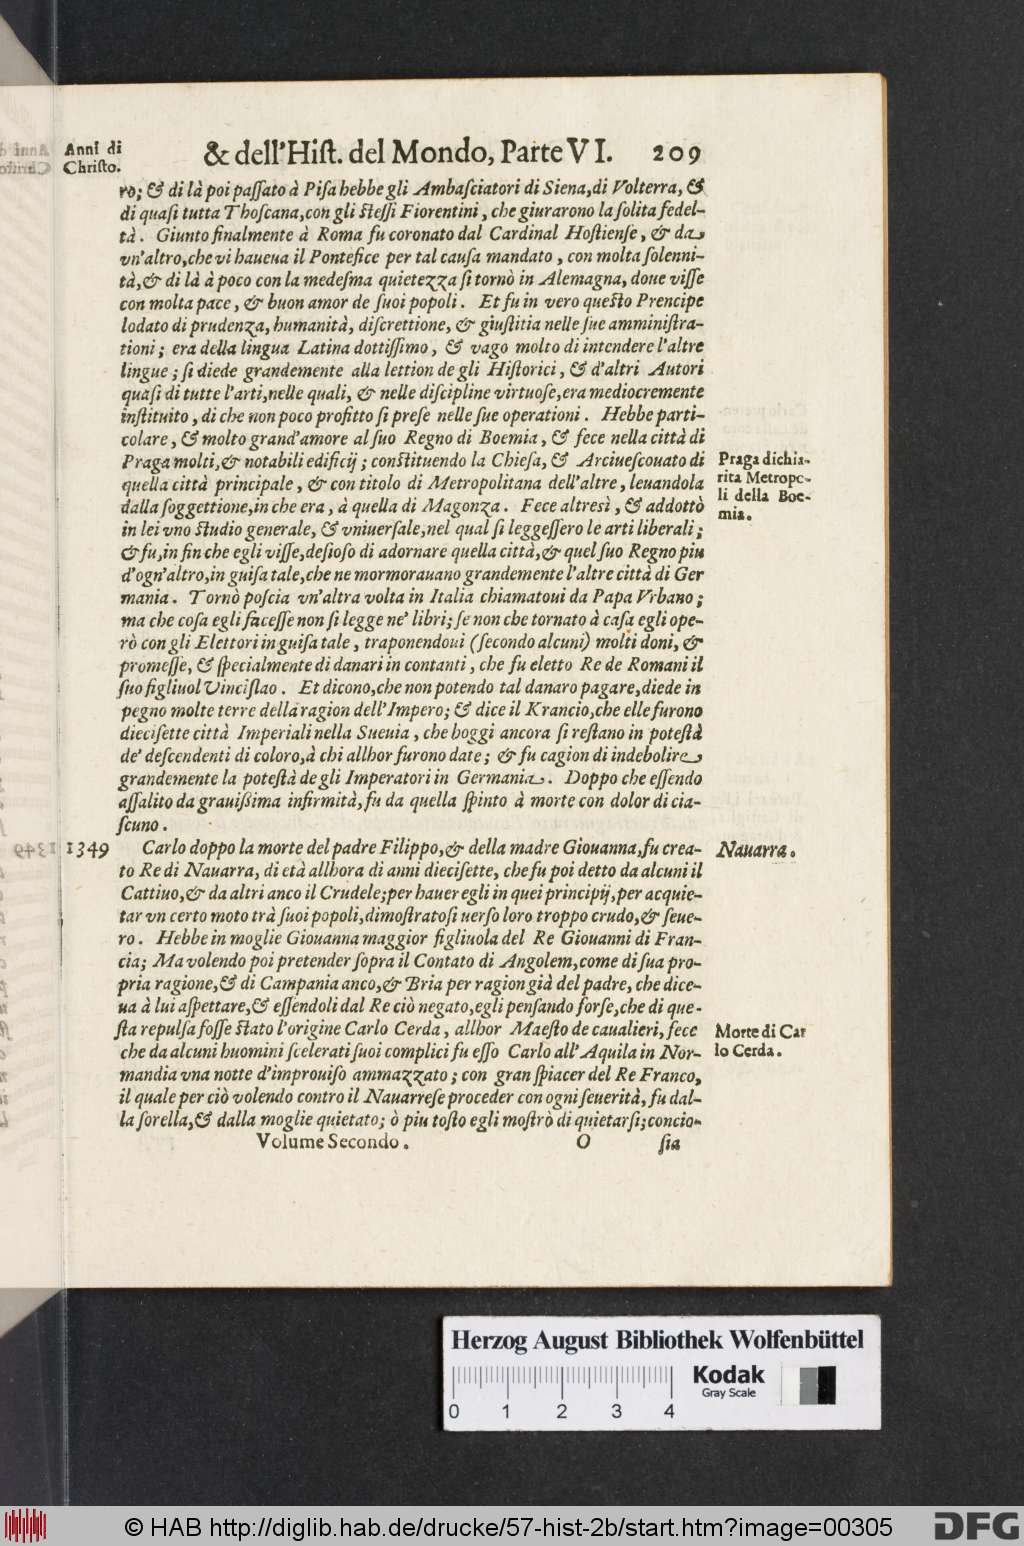 Anni di
Christo.
& dell'Hiſt. del Mondo, Parte VI. 209
ro; & di là poi paſſato à Piſa hebbe gli Ambaſciatori di Siena, di Volterra, &
di quaſi tutta Thoſcana, con gli ſteſſi Fiorentini, che giurarono la ſolita fedel-
tà. Giunto finalmente à Roma fu coronato dal Cardinal Hoſtienſe, & da
vn'altro, che vi haueua il Pontefice per tal cauſa mandato, con molta ſolenni-
tà, & di là à poco con la medeſma quietezza ſi tornò in Alemagna, doue viſſe
con molta pace, & buon amor de ſuoi popoli. Et fu in vero queſto Prencipe
lodato di prudenza, humanità, diſcrettione, & giuſtitia nelle ſue amminiſtra-
tioni; era della lingua Latina dottiſſimo, & vago molto di intendere l'altre
lingue; ſi diede grandemente alla lettion de gli Hiſtorici, & d'altri Autori
quaſi di tutte l'arti, nelle quali, & nelle diſcipline virtuoſe, era mediocremente
inſtituito, di che non poco profitto ſi preſe nelle ſue operationi. Hebbe parti-
colare, & molto grand'amore al ſuo Regno di Boemia, & fece nella città di
Praga molti, & notabili edificij; conſtituendo la Chieſa, & Arciueſcouato di
quella città principale, & con titolo di Metropolitana dell'altre, leuandola
dalla ſoggettione, in che era, à quella di Magonza. Fece altresì, & addottò
in lei vno ſtudio generale, & vniuerſale, nel qual ſi leggeſſero le arti liberali;
& fu, in fin che egli viſſe, deſioſo di adornare quella città, & quel ſuo Regno piu
d'ogn'altro, in guiſa tale, che ne mormorauano grandemente l'altre città di Ger
mania. Tornò poſcia vn'altra volta in Italia chiamatoui da Papa Vrbano;
ma che coſa egli faceſſe non ſi legge ne' libri; ſe non che tornato à caſa egli ope-
rò con gli Elettori in guiſa tale, traponendoui (ſecondo alcuni) molti doni, &
promeſſe, & ſpecialmente di danari in contanti, che fu eletto Re de Romani il
ſuo figliuol Vinciſlao. Et dicono, che non potendo tal danaro pagare, diede in
pegno molte terre della ragion dell'Impero; & dice il Krancio, che elle furono
dieciſette città Imperiali nella Sueuia, che hoggi ancora ſi reſtano in poteſtà
de' deſcendenti di coloro, à chi allhor furono date; & fu cagion di indebolire
grandemente la poteſtà de gli Imperatori in Germania. Doppo che eſſendo
aſſalito da grauiſsima infirmità, fu da quella ſpinto à morte con dolor di cia-
ſcuno.
Praga dichia-
rita Metropo-
li della Boe-
mia.
1349 Carlo doppo la morte del padre Filippo, & della madre Giouanna, fu crea-
to Re di Nauarra, di età allhora di anni dieciſette, che fu poi detto da alcuni il
Cattiuo, & da altri anco il Crudele; per hauer egli in quei principij, per acquie-
tar vn certo moto trà ſuoi popoli, dimoſtratoſi uerſo loro troppo crudo, & ſeue-
ro. Hebbe in moglie Giouanna maggior figliuola del Re Giouanni di Fran-
cia; Ma volendo poi pretender ſopra il Contato di Angolem, come di ſua pro-
pria ragione, & di Campania anco, & Bria per ragion già del padre, che dice-
ua à lui aſpettare, & eſſendoli dal Re ciò negato, egli penſando forſe, che di que-
ſta repulſa foſſe ſtato l'origine Carlo Cerda, allhor Maeſto de caualieri, fece
che da alcuni huomini ſcelerati ſuoi complici fu eſſo Carlo all'Aquila in Nor-
mandia vna notte d'improuiſo ammazzato; con gran ſpiacer del Re Franco,
il quale per ciò volendo contro il Nauarreſe proceder con ogni ſeuerità, fu dal-
la ſorella, & dalla moglie quietato; ò piu toſto egli moſtrò di quietarſi; concio-
Nauarra.
Morte di Car
lo Cerda.
Volume Secondo. O ſia
Herzog August Bibliothek Wolfenbüttel
0 1 2 3 4
Kodak
Gray Scale
© HAB http://diglib.hab.de/drucke/57-hist-2b/start.htm?image=00305
DFG